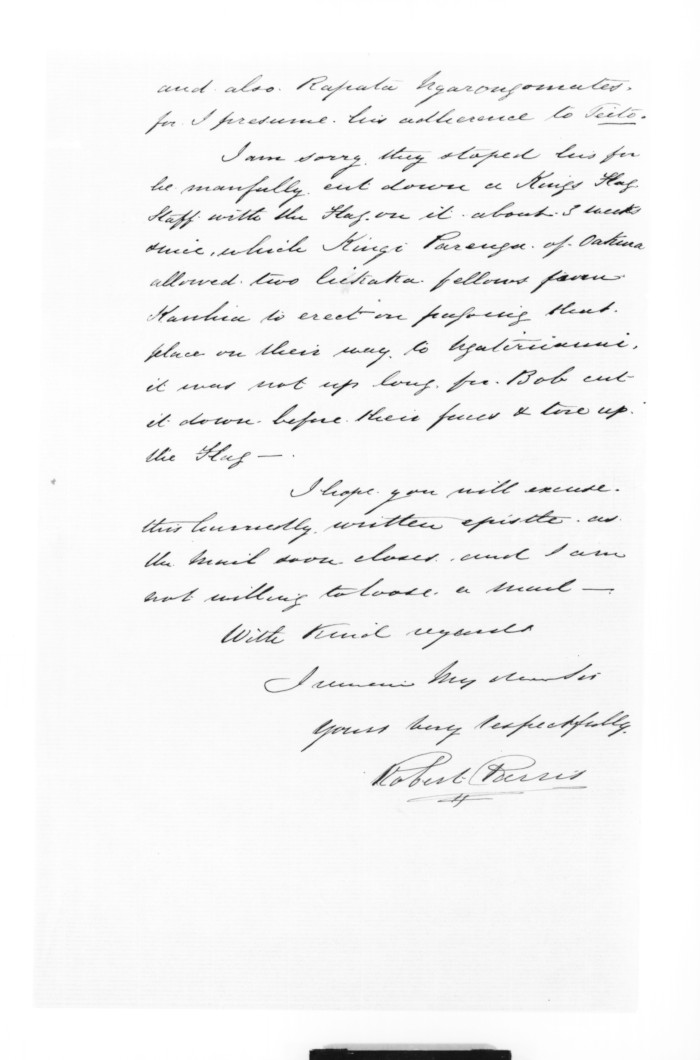 and also Rapata Ngarongomate's,
for I presume his adherence to Teito.
I am sorry they stoped his for
he manfully cut down a Kings Flag
Staff with the Flag on it about 3 weeks
since, which Kingi Parenga of Oakura
allowed two fellows from
Kawhia to erect on passing that
place on their way to Ngatiruanui,
it was not up long for Bob cut
it down before their faces & tore up
the Flag —.
I hope you will excuse
this hurriedly written epistle as
the Mail soon closes and I am
not willing to loose a mail —.
With Kind regards
I remain My dear Sir
Yours very respectfully
Robert Parris